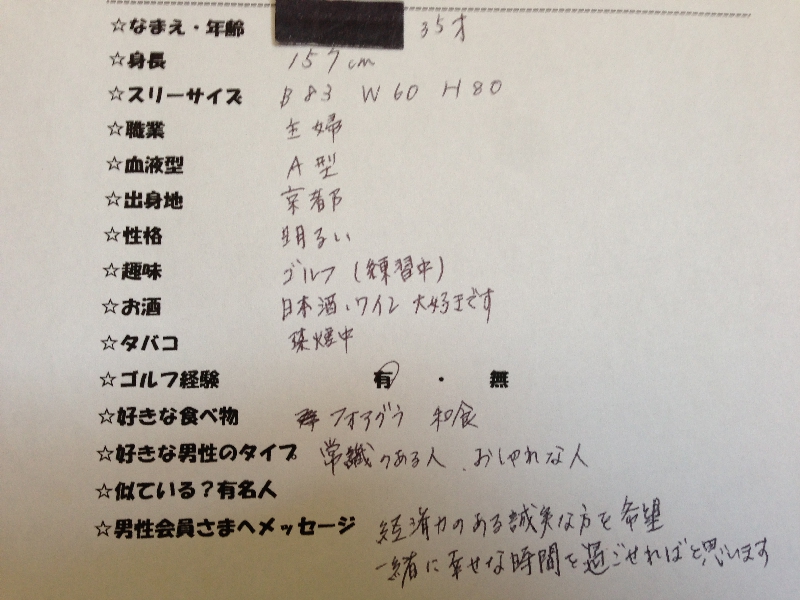 ☆なまえ・年齢 35才
☆身長 157cm
☆スリーサイズ B 83 W 60 H 80
☆職業 主婦
☆血液型 A型
☆出身地 京都
☆性格 明るい
☆趣味 ゴルフ (練習中)
☆お酒 日本酒、ワイン 大好きです
☆タバコ 禁煙中
☆ゴルフ経験 有 ・ 無
☆好きな食べ物 フォアグラ 和食
☆好きな男性のタイプ 常識のある人、おしゃれな人
☆似ている?有名人
☆男性会員さまへメッセージ 経済力のある誠実な方を希望
一緒に幸せな時間を過ごせればと思います